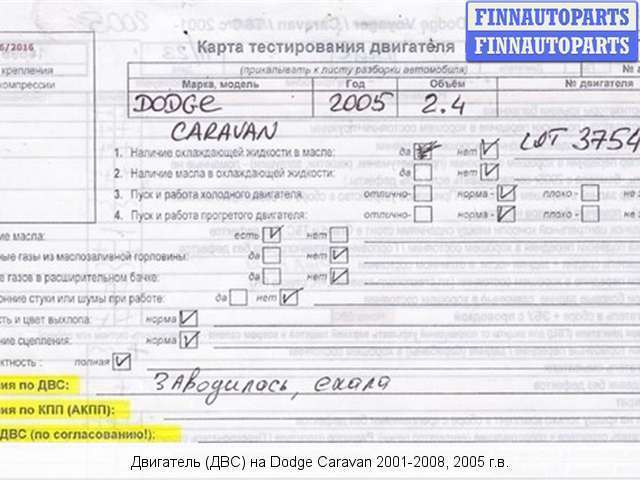 FINNAUTOPARTS
FINNAUTOPARTS
6/2016
Карта тестирования двигателя
крепления
компрессии
(прикалывать к листу разборки автомобиля)
Марка, модель Год Объём № двигателя
DODGE 2005 2.4
CARAVAN
1. Наличие охлаждающей жидкости в масле: да нет LOT 3754
2. Наличие масла в охлаждающей жидкости: да нет
3. Пуск и работа холодного двигателя: отлично- норма - плохо -
4. Пуск и работа прогретого двигателя: отлично- норма - плохо -
ие масла: есть нет
ные газы из маслозаливной горловины: да нет
е газов в расширительном бачке: да нет
онние стуки или шумы при работе: да нет
сть и цвет выхлопа: норма
яние сцепления: норма
ектность : полная
ния по ДВС: ЗАВОДИЛАСЬ, ехала
ия по КПП (АКПП):
ДВС (по согласованию!):
Двигатель (ДВС) на Dodge Caravan 2001-2008, 2005 г.в.